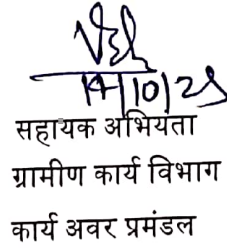 17/10/25
सहायक अभियंता
ग्रामीण कार्य विभाग
कार्य अवर प्रमंडल